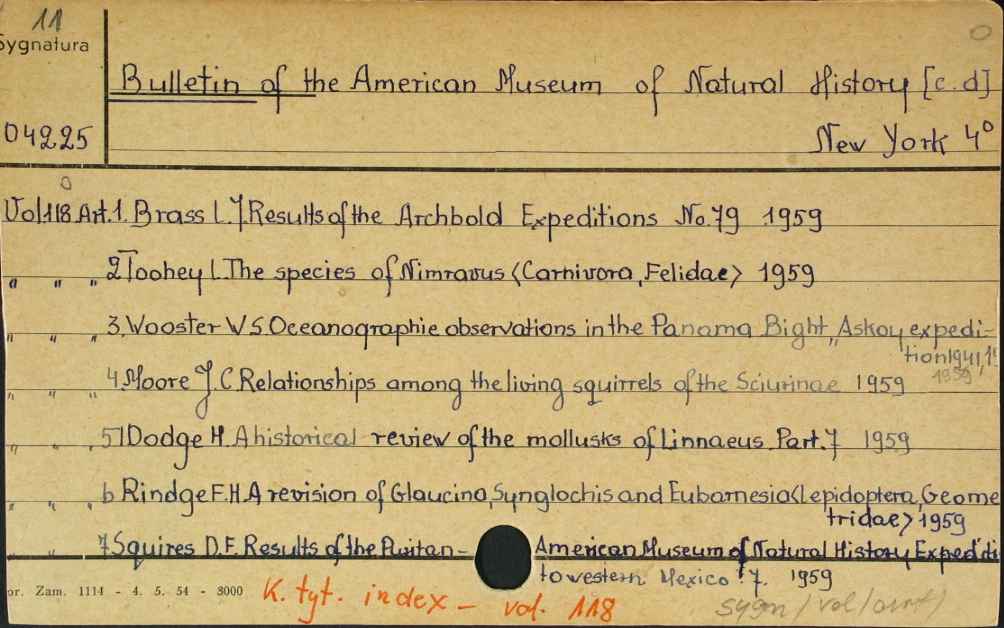 11
Sygnatura
Bulletin of the American Museum of Natural History [c.d]
04225
New York 4°
Vol.118 Art.1. Brass L.J Results of the Archbold Expeditions No.79 1959
" " " 2 Toohey L. The species of Nimravus <Carnivora, Felidae> 1959
" " " 3. Wooster W S. Oceanographie observations in the Panama Bight, "Askoy expedi-
tion 1941,
1959
" " " 4 Moore J.C Relationships among the living squirrels of the Sciurinae 1959
" " " 5 Dodge H. A historical review of the mollusks of Linnaeus. Part. 7 1959
" " " 6 Rindge F.H. A revision of Glaucina, Synglochis and Eubarnesia <Lepidoptera, Geome
tridae> 1959
" " 7 Squires D.F. Results of the Puritan - American Museum of Natural History Expediti
to western Mexico 7. 1959
or. Zam. 1114 - 4. 5. 54 - 3000
K. tyt. index - vol. 118
sygn/vol/